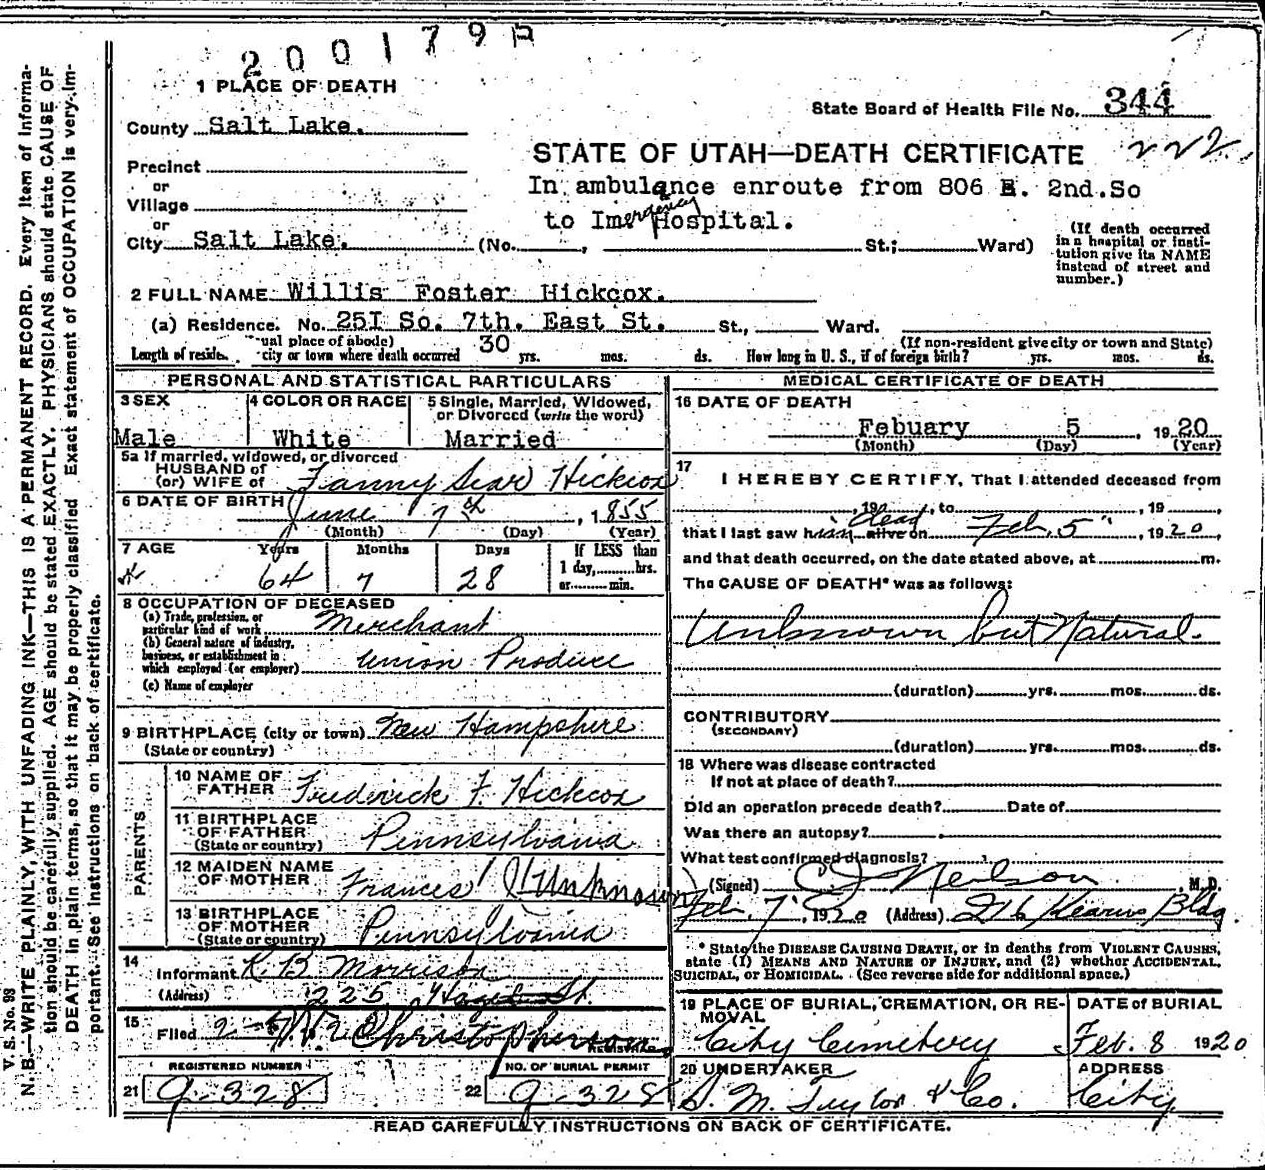 V. S. No. 93
N. B.—WRITE PLAINLY, WITH UNFADING INK—THIS IS A PERMANENT RECORD. Every item of informa-
tion should be carefully supplied. AGE should be stated EXACTLY. PHYSICIANS should state CAUSE OF
DEATH in plain terms, so that it may be properly classified Exact statement of OCCUPATION is very im-
portant. See instructions on back of certificate.
200179
1 PLACE OF DEATH
State Board of Health File No. 344
County Salt Lake.
222
STATE OF UTAH—DEATH CERTIFICATE
Precinct
or
Village
In ambulance enroute from 806 E. 2nd.So
to Imergency Hospital.
or
City Salt Lake. (No. , St.; Ward)
(If death occurred
in a hospital or insti-
tution give its NAME
instead of street and
number.)
2 FULL NAME Willis Foster Hickcox.
(a) Residence. No. 25I So. 7th. East St. St., Ward.
ual place of abode)
(If non-resident give city or town and State)
Length of reside city or town where death occurred 30 yrs. mos. ds. How long in U. S., if of foreign birth? yrs. mos. ds.
PERSONAL AND STATISTICAL PARTICULARS
3 SEX
Male
4 COLOR OR RACE
White
5 Single, Married, Widowed,
or Divorced (write the word)
Married
5a If married, widowed, or divorced
HUSBAND of
(or) WIFE of Fanny Sear Hickcox
6 DATE OF BIRTH June 7th, 1855
(Month) (Day) (Year)
7 AGE Years Months Days If LESS than
1 day, hrs.
or min.
64 7 28
8 OCCUPATION OF DECEASED
(a) Trade, profession, or
particular kind of work Merchant
(b) General nature of industry,
business, or establishment in
which employed (or employer) Union Produce
(c) Name of employer
9 BIRTHPLACE (city or town) New Hampshire
(State or country)
PARENTS
10 NAME OF
FATHER Frederick F. Hickcox
11 BIRTHPLACE
OF FATHER
(State or country) Pennsylvania
12 MAIDEN NAME
OF MOTHER Frances (Unknown)
13 BIRTHPLACE
OF MOTHER
(State or country) Pennsylvania
14
Informant R B Morrison
(Address) 225
15
Filed Christopherson
REGISTRAR
REGISTERED NUMBER
21 9-328
NO. OF BURIAL PERMIT
22 9-328
MEDICAL CERTIFICATE OF DEATH
16 DATE OF DEATH
Febuary 5, 1920
(Month) (Day) (Year)
17
I HEREBY CERTIFY, That I attended deceased from
, 19 , to , 19
that I last saw him alive on dead Feb. 5", 1920
and that death occurred, on the date stated above, at m.
The CAUSE OF DEATH* was as follows:
Unknown but Natural.
(duration) yrs. mos. ds.
CONTRIBUTORY
(SECONDARY)
(duration) yrs. mos. ds.
18 Where was disease contracted
If not at place of death?
Did an operation precede death? Date of
Was there an autopsy?
What test confirmed diagnosis?
(Signed) C J Neilson, M. D.
Feb. 7", 1920 (Address) 216 Kearns Bldg.
* State the DISEASE CAUSING DEATH, or in deaths from VIOLENT CAUSES,
state (1) MEANS AND NATURE OF INJURY, and (2) whether ACCIDENTAL,
SUICIDAL, or HOMICIDAL. (See reverse side for additional space.)
19 PLACE OF BURIAL, CREMATION, OR RE-
MOVAL
City Cemetery
DATE of BURIAL
Feb. 8 1920
20 UNDERTAKER
S. M. Taylor & Co.
ADDRESS
City
READ CAREFULLY INSTRUCTIONS ON BACK OF CERTIFICATE.